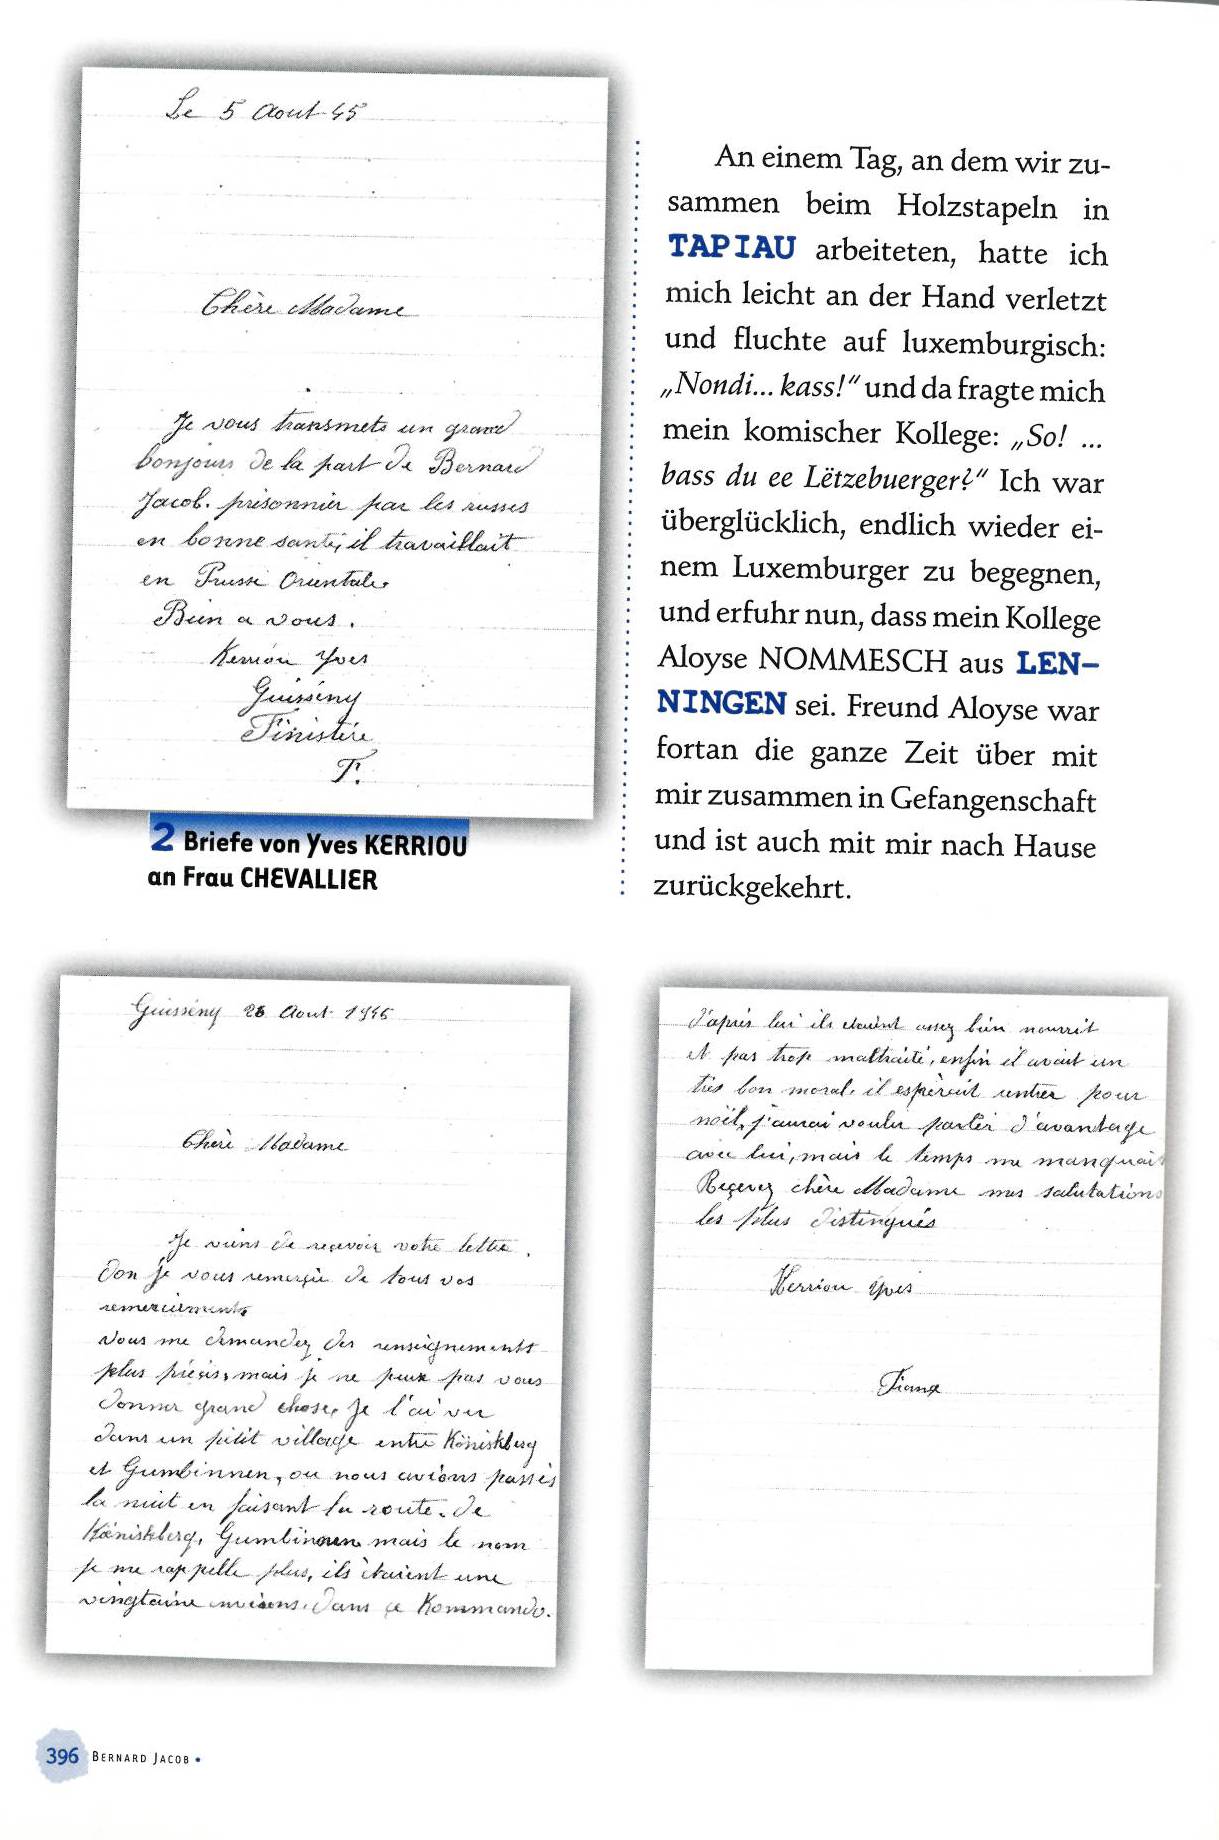 Le 5 Aout 45
Chère Madame
Je vous transmets un grand
bonjours de la part de Bernard
Jacob. prisonnier par les russes
en bonne santé, il travaillait
en Prusse Orientale.
Bien a vous.
Kerriou Yves
Guissény
Finistère
F.
2 Briefe von Yves KERRIOU
an Frau CHEVALLIER
An einem Tag, an dem wir zu-
sammen beim Holzstapeln in
TAPIAU arbeiteten, hatte ich
mich leicht an der Hand verletzt
und fluchte auf luxemburgisch:
„Nondi... kass!“ und da fragte mich
mein komischer Kollege: „So! ...
bass du ee Lëtzebuerger?“ Ich war
überglücklich, endlich wieder ei-
nem Luxemburger zu begegnen,
und erfuhr nun, dass mein Kollege
Aloyse NOMMESCH aus LEN-
NINGEN sei. Freund Aloyse war
fortan die ganze Zeit über mit
mir zusammen in Gefangenschaft
und ist auch mit mir nach Hause
zurückgekehrt.
Guissény 26 Aout 1945
Chère Madame
Je viens de recevoir votre lettre.
Don je vous remerçie de tous vos
remerciements
Vous me demandez des renseignements
plus précis, mais je ne peux pas vous
donner grand chose, Je l'ai vu
dans un petit village entre Köniskberg
et Gumbinnen, ou nous avions passés
la nuit en faisant la route. de
Köniskberg, Gumbinnen mais le nom
je me rappelle plus, ils étaient une
vingtaine environs. Dans ce Kommando.
d'après lui ils étaient assez bien nourrit
et pas trop maltraité, enfin il avait un
très bon moral, il espèrait rentrer pour
noël, j'aurai voulu parler d'avantage
avec lui, mais le temps me manquait
Reçevez chère Madame mes salutations
les plus distingués
Kerriou Yves
396 BERNARD JACOB •